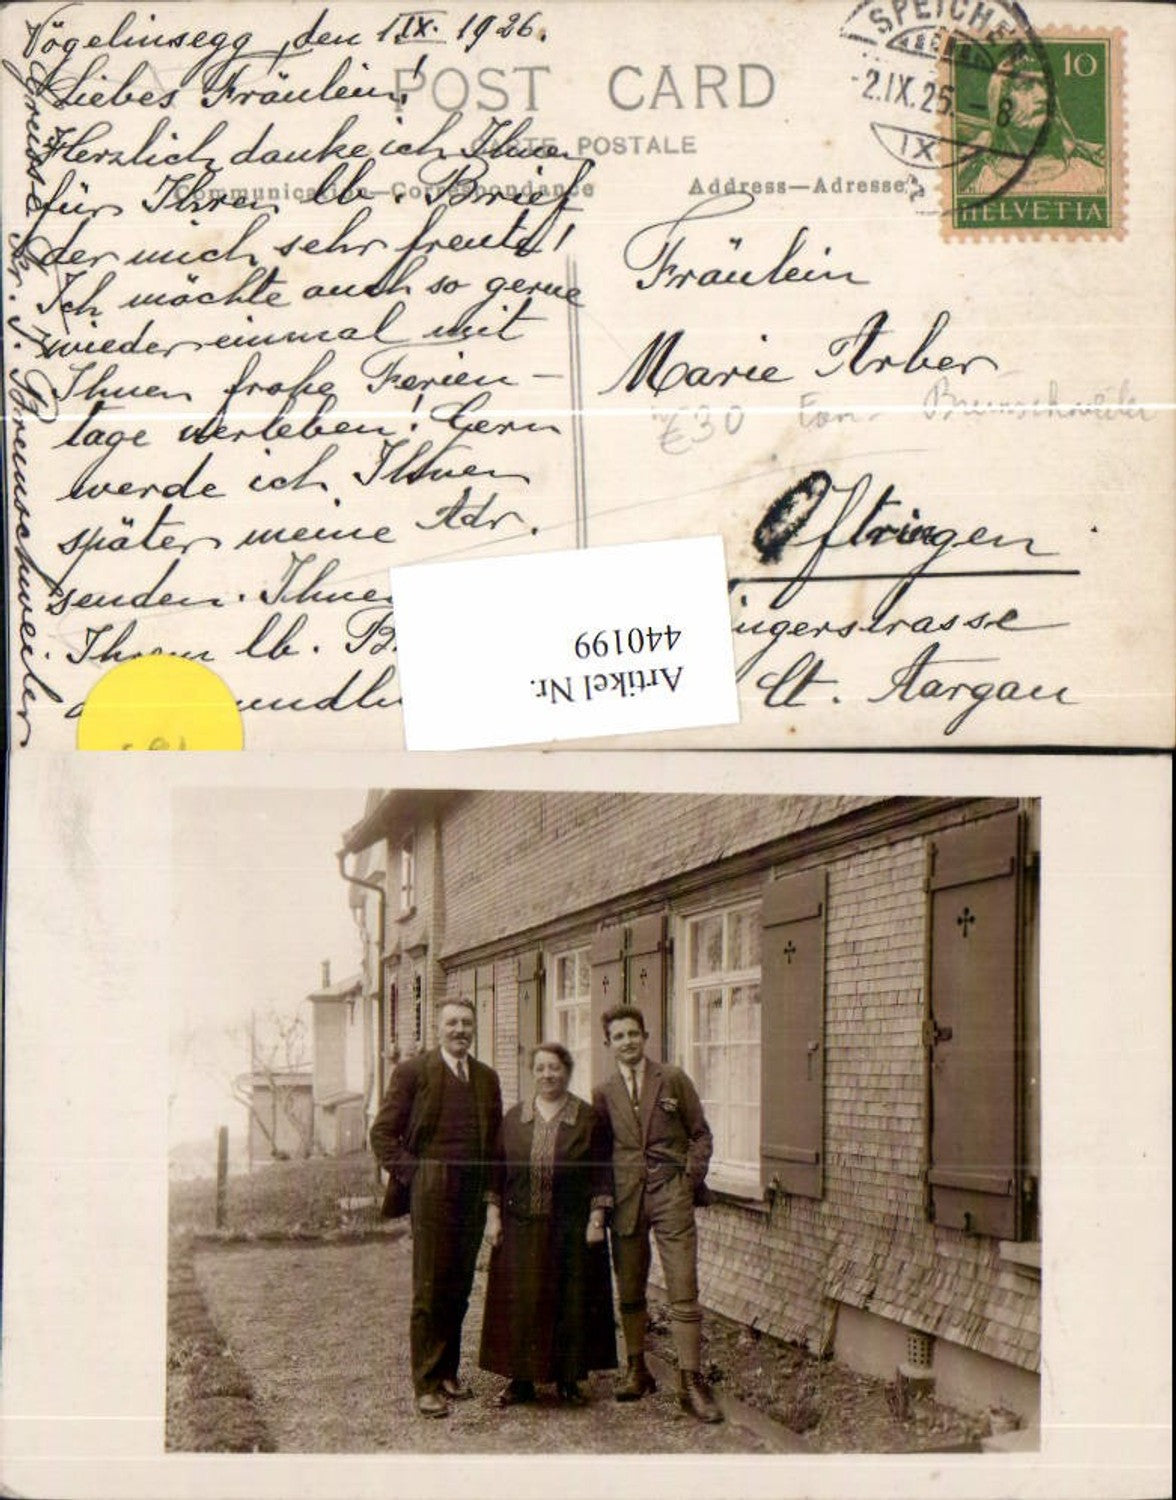 Vögelinsegg, den 1.IX. 1926.
Liebes Fräulein!
Herzlich danke ich Ihnen
für Ihren lb. Brief
der mich sehr freute!
Ich möchte auch so gerne
wieder einmal mit
Ihnen frohe Ferien-
tage verleben! Gern
werde ich Ihnen
später meine Adr.
senden. Ihnen
Ihrem lb. B.
Grüsse Fr. J. Brunschweiler
POST CARD
CARTE POSTALE
Communication—Correspondance
Address—Adresse
SPEICHER
-2.IX.25.-8
IX
10
HELVETIA
Fräulein
Marie Arber
£30 Brunschweiler
Oftringen
ingerstrasse
Ct. Aargau
Artikel Nr.
440199